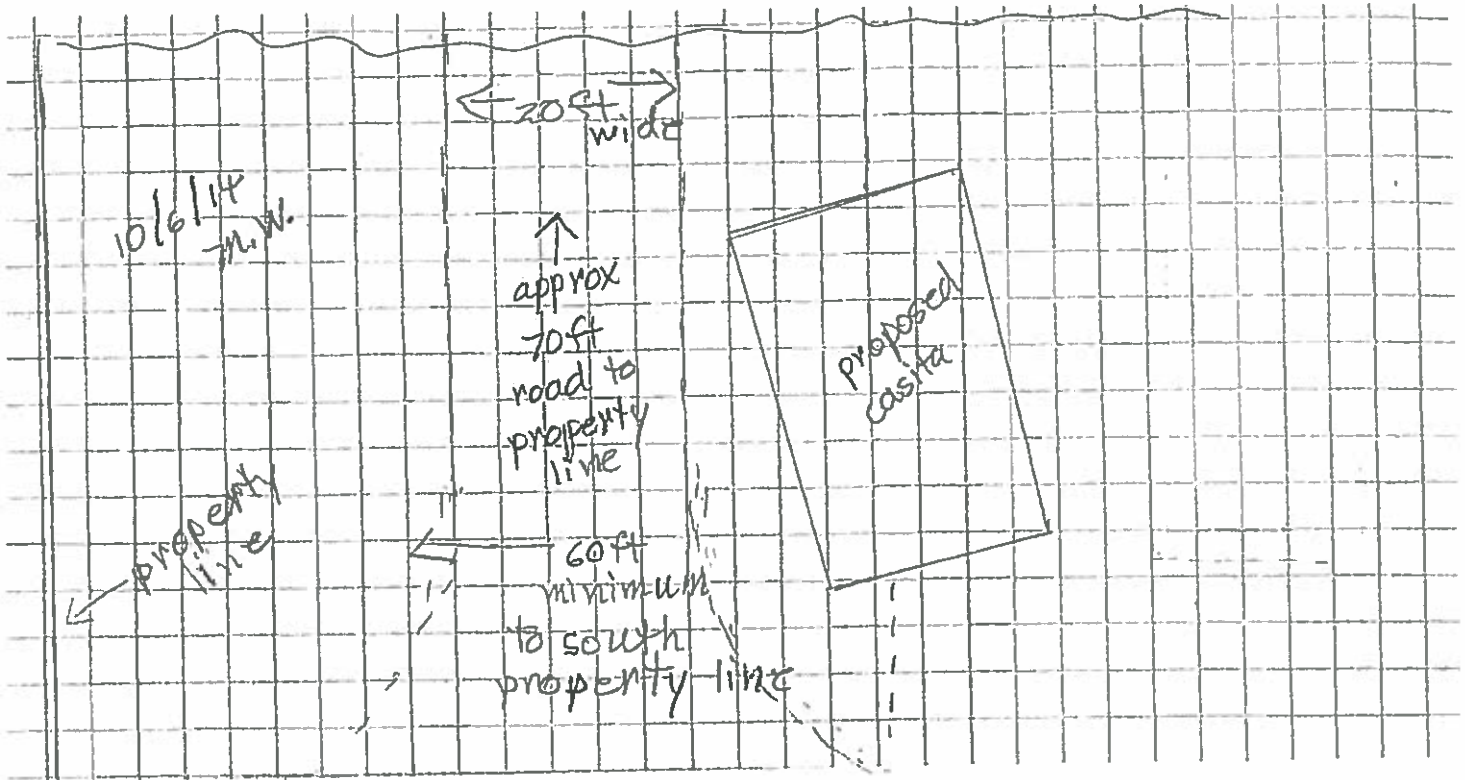 20 ft.
wide
10/6/14
-M.W.
approx
70ft
road to
property
line
proposed
casita
property
line
60 ft
minimum
to south
property line